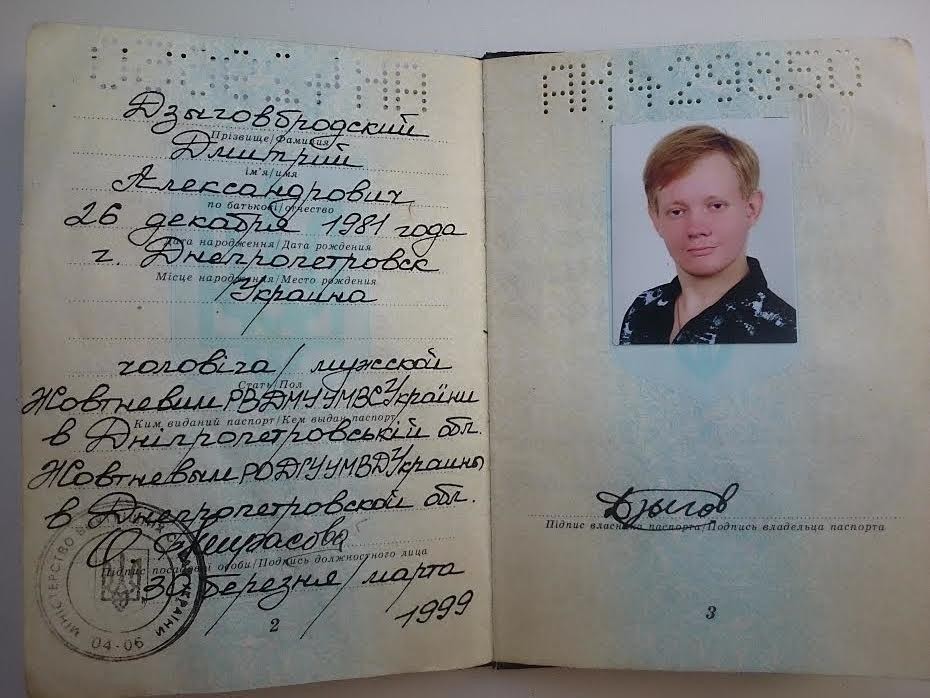 Дзыговбродский
Прізвище/Фамилия
Дмитрий
ім'я/имя
Александрович
по батькові/отчество
26 декабря 1981 года
Дата народження/Дата рождения
г. Днепропетровск
Місце народження/Место рождения
Украина
чоловіча/мужской
Стать/Пол
Жовтневим РВДМУУМВСУкраїни
Ким виданий паспорт/Кем выдан паспорт
в Дніпропетровській обл.
Жовтневым РОДГУУМВДУкраины
в Днепропетровской обл.
Підпис посадової особи/Подпись должностного лица
30 березня/марта
1999
МІНІСТЕРСТВО УКРАЇНИ
04-06
2
АМ429650
Дзыгов
Підпис власника паспорта/Подпись владельца паспорта
3